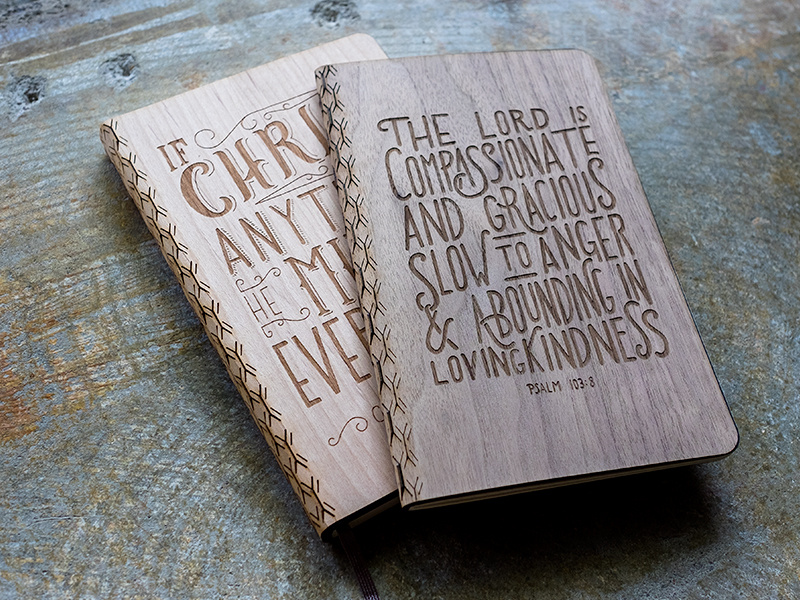 IF
CHRI
ANYT
HE
EVE
THE LORD IS
COMPASSIONATE
AND GRACIOUS
SLOW TO ANGER
& ABOUNDING IN
LOVINGKINDNESS
PSALM 103:8